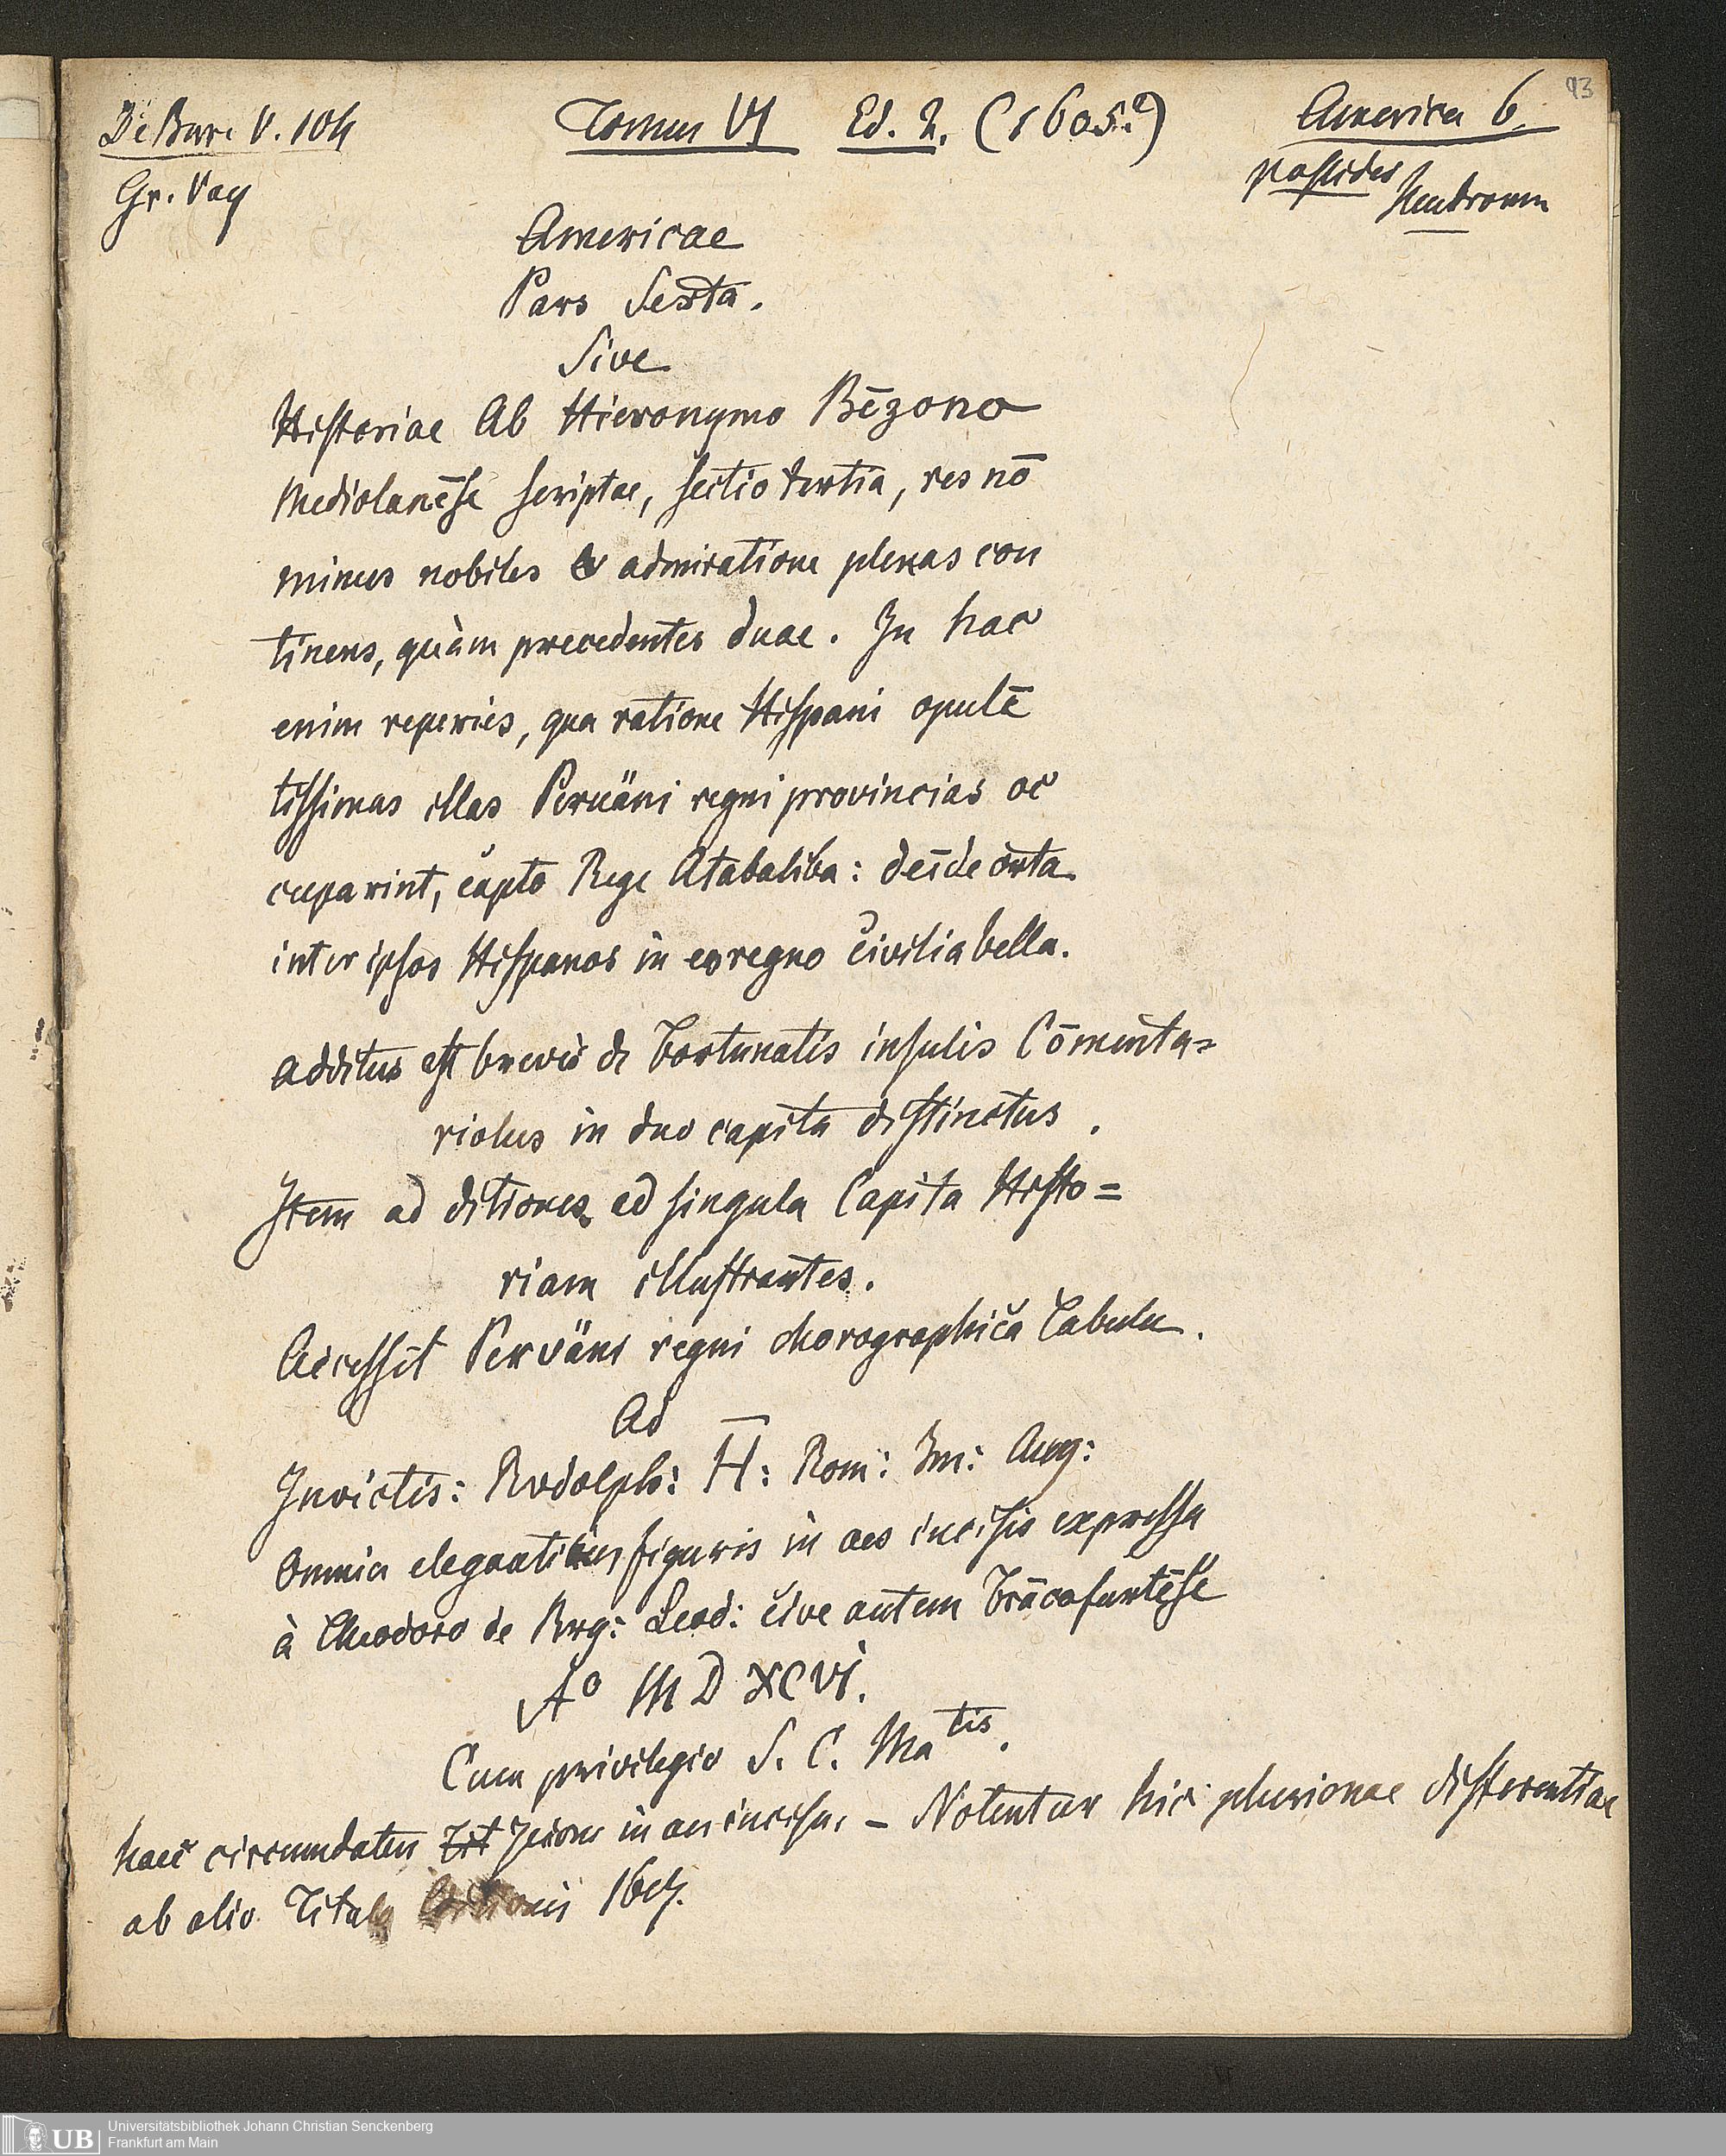 De Bure V. 104
Tomus VI Ed. 2. (1605?)
America 6.
93
Gr. Voy
Americae
Pars Sexta.
Sive
Historiae Ab Hieronymo Bēzono
Mediolanēse scriptae, sectio tertia, res nō
minus nobiles & admiratione plenas con
tinens, quàm precedentes duae. In hac
enim reperies, qua ratione Hispani opulē
tissimas illas Peruäni regni provincias oc
cuparint, capto Rege Atabaliba: deīde orta
inter ipsos Hispanos in eo regno civilia bella.
additus est brevis de Fortunatis insulis Cōmenta=
riolus in duo capita distinctus.
Item ad ditiones ad singula Capita Histo=
riam illustrantes.
Accessit Perväni regni chorographica Tabula.
Ad
Invictis: Rvdolph: II: Rom: Im: Aug:
Omnia elegantibus figuris in aes incisis expressa
à Theodoro de Bry: Leod: cive autem Frācofurtēse
Aº MDXCVI.
Cum privilegio S. C. Matis.
haec circumdaten in aes incisa, – Notentur hic plurimae differentiae
ab alio Titulo